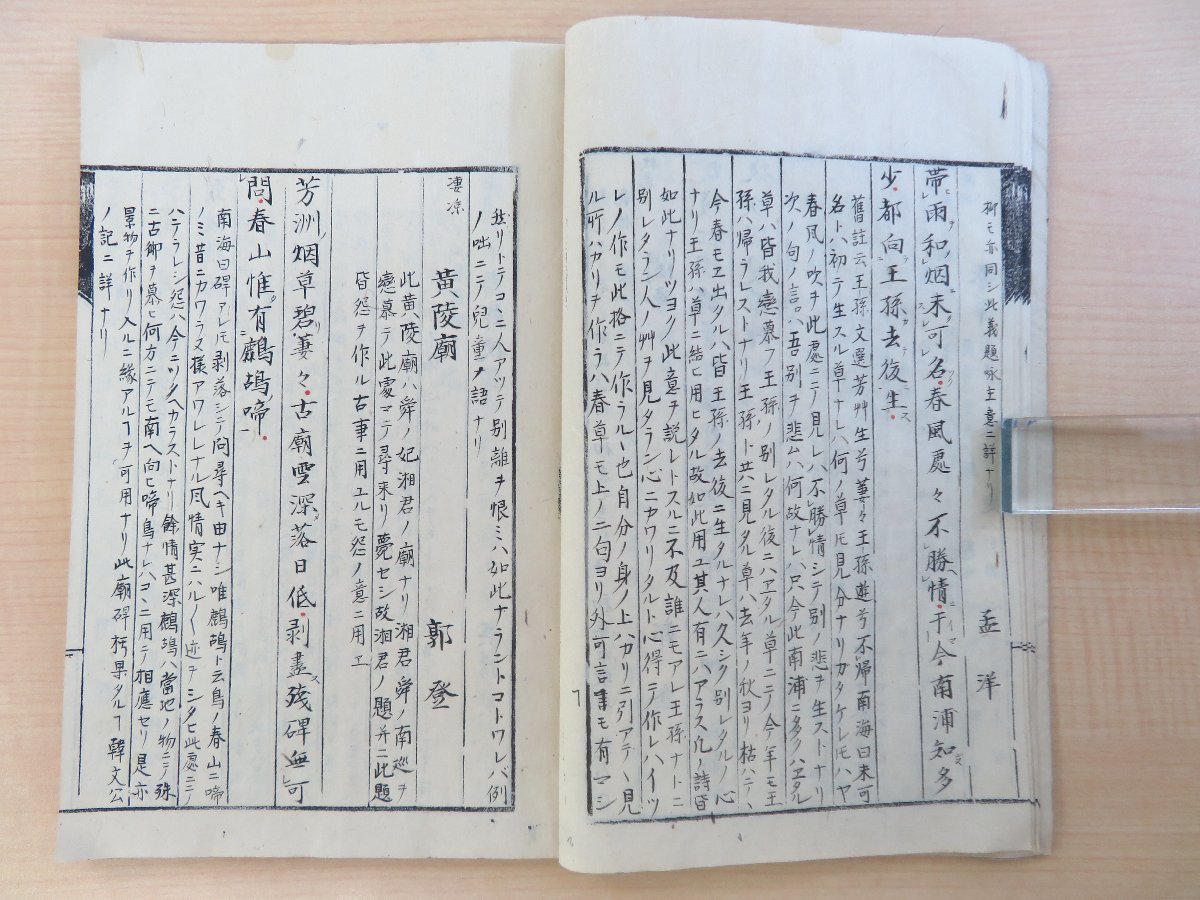 柳モ亦同シ此義題咏主意ニ詳ナリ
孟洋
帯雨和烟未可名春風處々不勝情干今南浦知多
少都向王孫去後生
舊註云王孫文選芳艸生兮萋々王孫遊兮不歸南海曰未可
名トハ初テ生スル草ナレハ何ノ草トモ見分ナリカタケレモハヤ
春風ノ吹ヲ此處ニテ見レハ不勝情シテ別ノ悲ヲ生ストナリ
次ノ句ノ言ハ吾別ヲ悲ムハ何故ナレハ只今此南浦ニ多クハヱタル
草ハ皆我戀慕フ王孫ノ別レタル後ニハヱタル草ニテ今年モ王
孫ハ帰ラレストナリ王孫ト共ニ見タル草ハ去年ノ秋ヨリ枯ハテヽ
今春モヱ出タルハ皆王孫ノ去後ニ生タルナレハ久シク別レタルノ心
ナリ王孫ハ草ニ結ヒ用ヒタル故如此用ユ其人有ニハアラス凡ノ詩皆
如此ナリツヨク此意ヲ説レトスルニ不及誰ニモアレ王孫ナトニ
別レタラン人ノ艸ヲ見タラン心ニカワリタルト心得テ作レハイツ
レノ作モ此格ニテ作ラルヽ也自分ノ身ノ上ハカリニ引アテヽ見
ル所ハカリヲ作ラハ春草モ上ノ二句ヨリ外可言事モ有マシ
愁リトテコヽニ人アツテ別離ヲ恨ミハ如此ナラントコトワレバ例
ノ咄ニテ兒童ノ語ナリ
凄凉
黄陵廟 郭登
此黄陵廟ハ舜ノ妃湘君ノ廟ナリ湘君舜ノ南巡ヲ
戀慕テ此處マテ尋来リ薨セシ故湘君ノ題并ニ此題
皆怨ヲ作ル古事ニ用ユルモ怨ノ意ニ用ヱ
芳洲烟草碧萋々古廟雲深落日低剥盡残碑無可
問春山惟有鷓鴣啼
南海曰碑アレモ剥落シテ問尋ヘキ由ナシ唯鷓鴣ト云鳥ノ春山ニ啼
ノミ昔ニカワラヌ様アワレナル風情実ニハル〱迹ヲシタヒ此處ニテ
ハテラレシ怨ハ今ニツクヘカラストナリ餘情甚深鷓鴣ハ當地ノ物ニテ殊
ニ古郷ヲ慕ヒ何方ニテモ南ヘ向ヒ啼鳥ナレハコヽニ用テ相應セリ是亦
景物ヲ作リ入ルニ縁アルヿヲ可用ナリ此廟碑朽果タルヿ韓文公
ノ記ニ詳ナリ